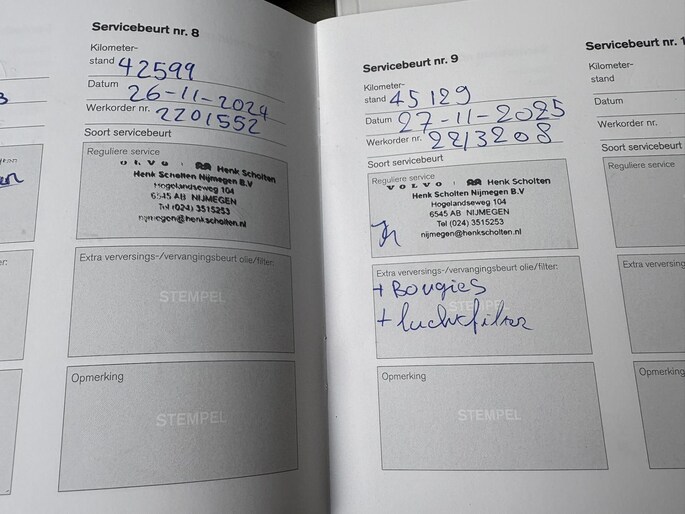 Servicebeurt nr. 8
Kilometer-
stand 42599
Datum 26-11-2024
Werkorder nr. 2201552
Soort servicebeurt
Reguliere service
OLVO Henk Scholten
Henk Scholten Nijmegen B.V
Hogelandseweg 104
6545 AB NIJMEGEN
Tel (024) 3515253
nijmegen@henkscholten.nl
Extra verversings-/vervangingsbeurt olie/filter:
STEMPEL
Opmerking
STEMPEL
Servicebeurt nr. 9
Kilometer-
stand 45129
Datum 27-11-2025
Werkorder nr. 2213208
Soort servicebeurt
Reguliere service
VOLVO Henk Scholten
Henk Scholten Nijmegen B.V
Hogelandseweg 104
6545 AB NIJMEGEN
Tel (024) 3515253
nijmegen@henkscholten.nl
Extra verversings-/vervangingsbeurt olie/filter:
+ Bougies
STEMPEL
+ luchtfilter
Opmerking
STEMPEL
Servicebeurt nr. 1
Kilometer-
stand
Datum
Werkorder nr.
Soort servicebeurt
Reguliere service
Extra verversings
Opmerking